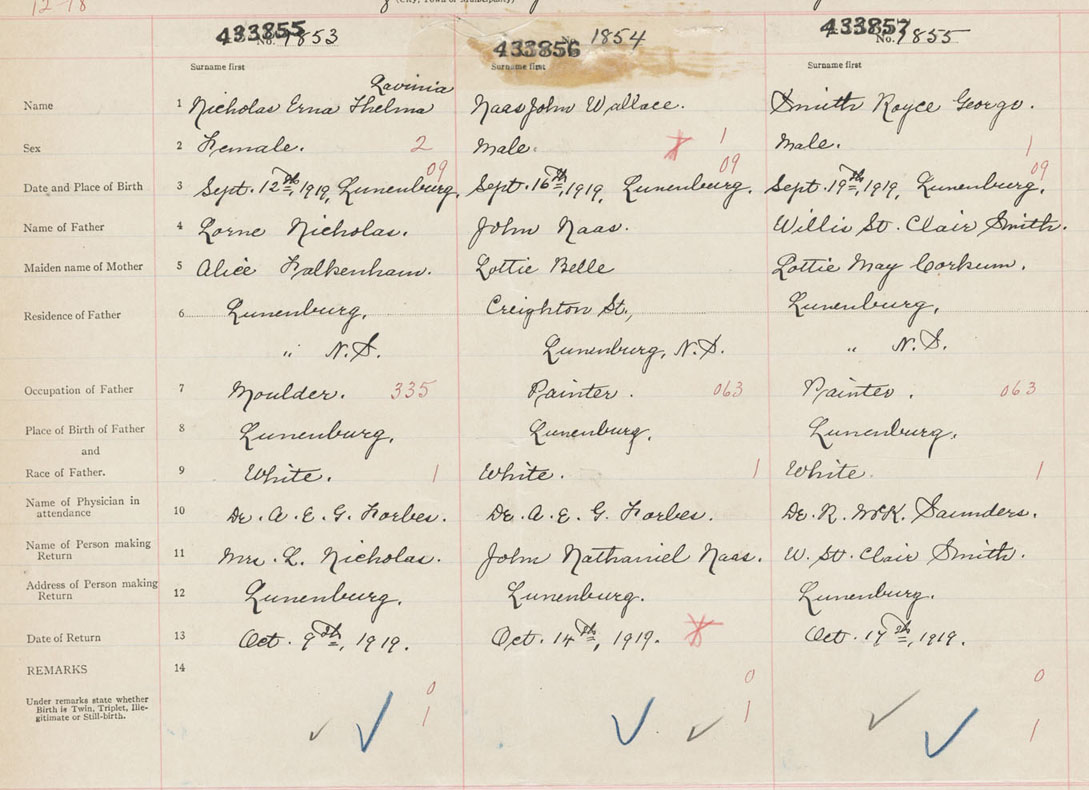 12-18
(City, Town or Municipality)
433855 No. 1853 433856 No. 1854 433857 No. 1855
Surname first Surname first Surname first
Lavinia
Name 1 Nicholas Erna Thelma Naas John Wallace. Smith Royce George.
Sex 2 Female. 2 Male. 1 Male. 1
09 09 09
Date and Place of Birth 3 Sept. 12th, 1919, Lunenburg. Sept. 16th, 1919, Lunenburg. Sept. 19th, 1919, Lunenburg.
Name of Father 4 Lorne Nicholas. John Naas. Willis St. Clair Smith.
Maiden name of Mother 5 Alice Falkenham. Lottie Belle Lottie May Corkum.
Residence of Father 6 Lunenburg, Creighton St., Lunenburg,
" N.S. Lunenburg, N.S. " N.S.
Occupation of Father 7 Moulder. 335 Painter. 063 Painter. 063
Place of Birth of Father 8 Lunenburg. Lunenburg. Lunenburg.
and
Race of Father. 9 White. 1 White. 1 White. 1
Name of Physician in
attendance 10 Dr. A. E. G. Forbes. Dr. A. E. G. Forbes. Dr. R. McK. Saunders.
Name of Person making
Return 11 Mrs. L. Nicholas. John Nathaniel Naas. W. St. Clair Smith.
Address of Person making
Return 12 Lunenburg. Lunenburg. Lunenburg.
Date of Return 13 Oct. 9th, 1919. Oct. 14th, 1919. Oct. 17th, 1919.
REMARKS 14
0 0 0
Under remarks state whether
Birth is Twin, Triplet, Ille-
gitimate or Still-birth.
1 1 1